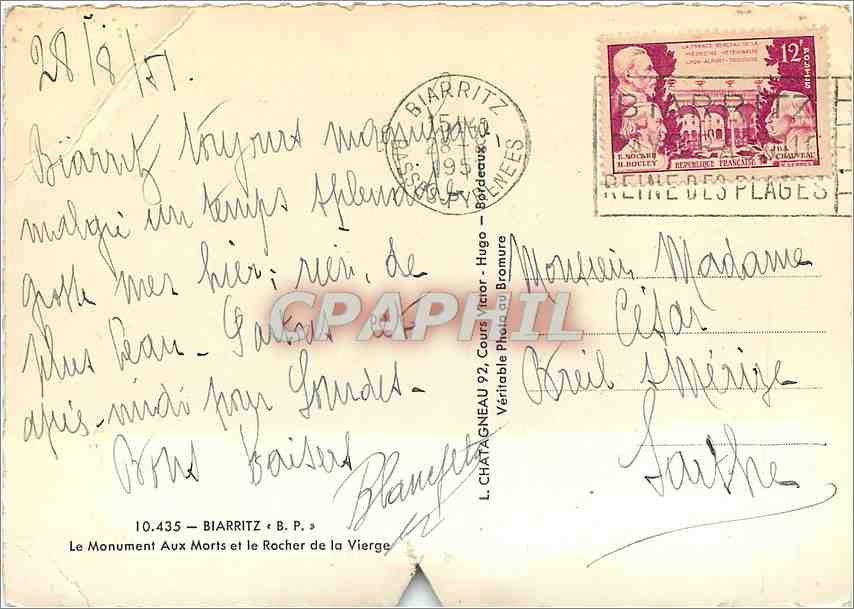 28/8/51.
Biarritz toujours magnifique
malgré un temps splendide
grosse mer hier, rien de
plus beau - Partons cet
après-midi pour Lourdes -
Bons baisers
Blanchette
10.435 — BIARRITZ « B. P. »
Le Monument Aux Morts et le Rocher de la Vierge
L. CHATAGNEAU 92, Cours Victor - Hugo — Bordeaux
Véritable Photo au Bromure
BIARRITZ
1951
BASSES PYRENEES
LA FRANCE BERCEAU DE LA
MÉDECINE VÉTÉRINAIRE
LYON-ALFORT-TOULOUSE
12F
POSTES
E. NOCARD
H. BOULEY
JBA
CHAUVEAU
REPUBLIQUE FRANÇAISE
BIARRITZ
REINE DES PLAGES
Monsieur Madame
César
Breil s/Mérize
Sarthe
CPAPHIL